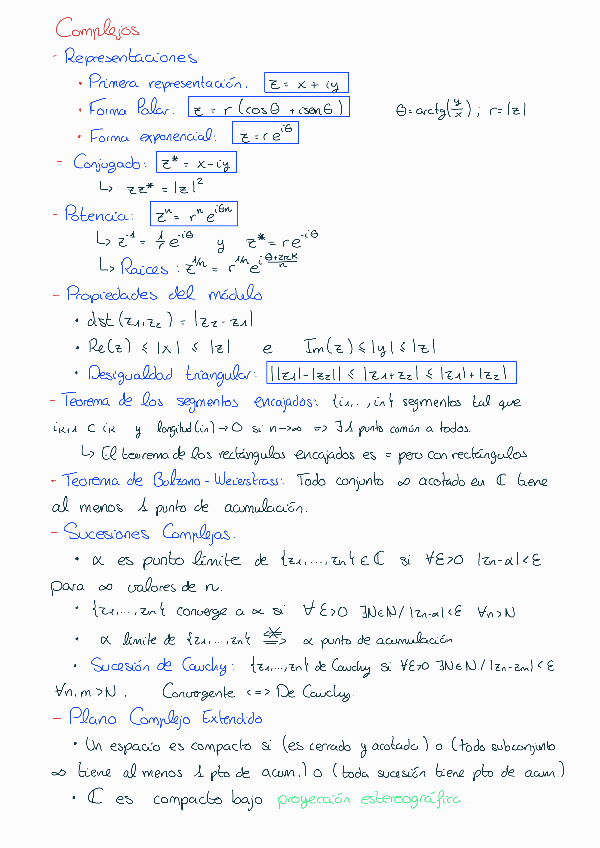 Complejos
- Representaciones
• Primera representación. z = x + iy
• Forma Polar: z = r (cosθ + isenθ) θ = arctg(y/x) ; r = |z|
• Forma exponencial: z = r e^{iθ}
- Conjugado: z* = x - iy
↳ zz* = |z|²
- Potencia: zⁿ = rⁿ e^{iθn}
↳ z⁻¹ = 1/r e^{-iθ} y z* = r e^{-iθ}
↳ Raices : z^{1/n} = r^{1/n} e^{i (θ+2πk)/n}
- Propiedades del módulo
• dist (z₁, z₂) = |z₂ - z₁|
• Re(z) ≤ |x| ≤ |z| e Im(z) ≤ |y| ≤ |z|
• Desigualdad triangular: ||z₁| - |z₂|| ≤ |z₁ + z₂| ≤ |z₁| + |z₂|
- Teorema de los segmentos encajados: {i₁, .., iₙ} segmentos tal que
i_{k+1} ⊂ i_k y longitud (iₙ) → 0 si n→∞ => ∃ 1 punto común a todos.
↳ El teorema de los rectángulos encajados es = pero con rectángulos
- Teorema de Bolzano - Weierstrass: Todo conjunto ∞ acotado en ℂ tiene
al menos 1 punto de acumulación.
- Sucesiones Complejas.
• α es punto límite de {z₁, ..., zₙ} ∈ ℂ si ∀ε>0 |zₙ-α| < ε
para ∞ valores de n.
• {z₁, ..., zₙ} converge a α si ∀ε>0 ∃N∈ℕ / |zₙ-α| < ε ∀n>N
• α límite de {z₁, ..., zₙ} <≠=> α punto de acumulación
• Sucesión de Cauchy: {z₁, ..., zₙ} de Cauchy si ∀ε>0 ∃N∈ℕ / |zₙ-zₘ| < ε
∀n, m > N. Convergente <=> De Cauchy.
- Plano Complejo Extendido
• Un espacio es compacto si (es cerrado y acotado) o (todo subconjunto
∞ tiene al menos 1 pto de acum.) o (toda sucesión tiene pto de acum.)
• ℂ es compacto bajo proyección estereográfica